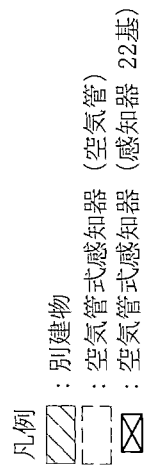 凡例
：別建物
：空気管式感知器（空気管）
：空気管式感知器（感知器 22基）